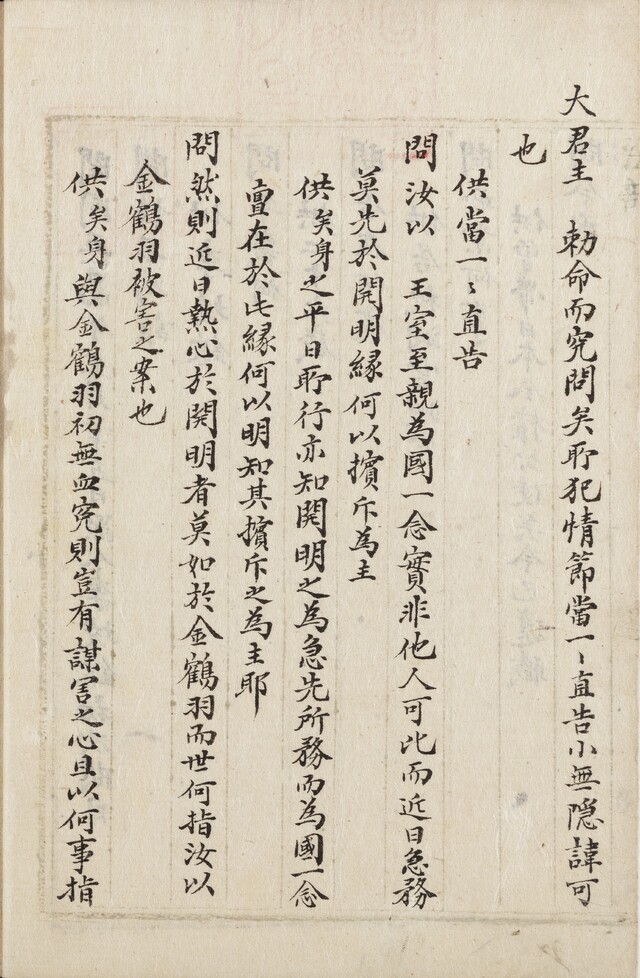 大君主　勅命而究問矣所犯情節當一〻直告小無隱諱可
也
供當一〻直告
問汝以　王室至親為國一念實非他人可比而近日急務
莫先於開明緣何以擯斥為主
供矣身之平日所行亦知開明之為急先所務而為國一念
亶在於此緣何以明知其擯斥之為主耶
問然則近日熱心於開明者莫如於金鶴羽而世何指汝以
金鶴羽被害之案也
供矣身與金鶴羽初無血寃則豈有謀害之心且以何事指